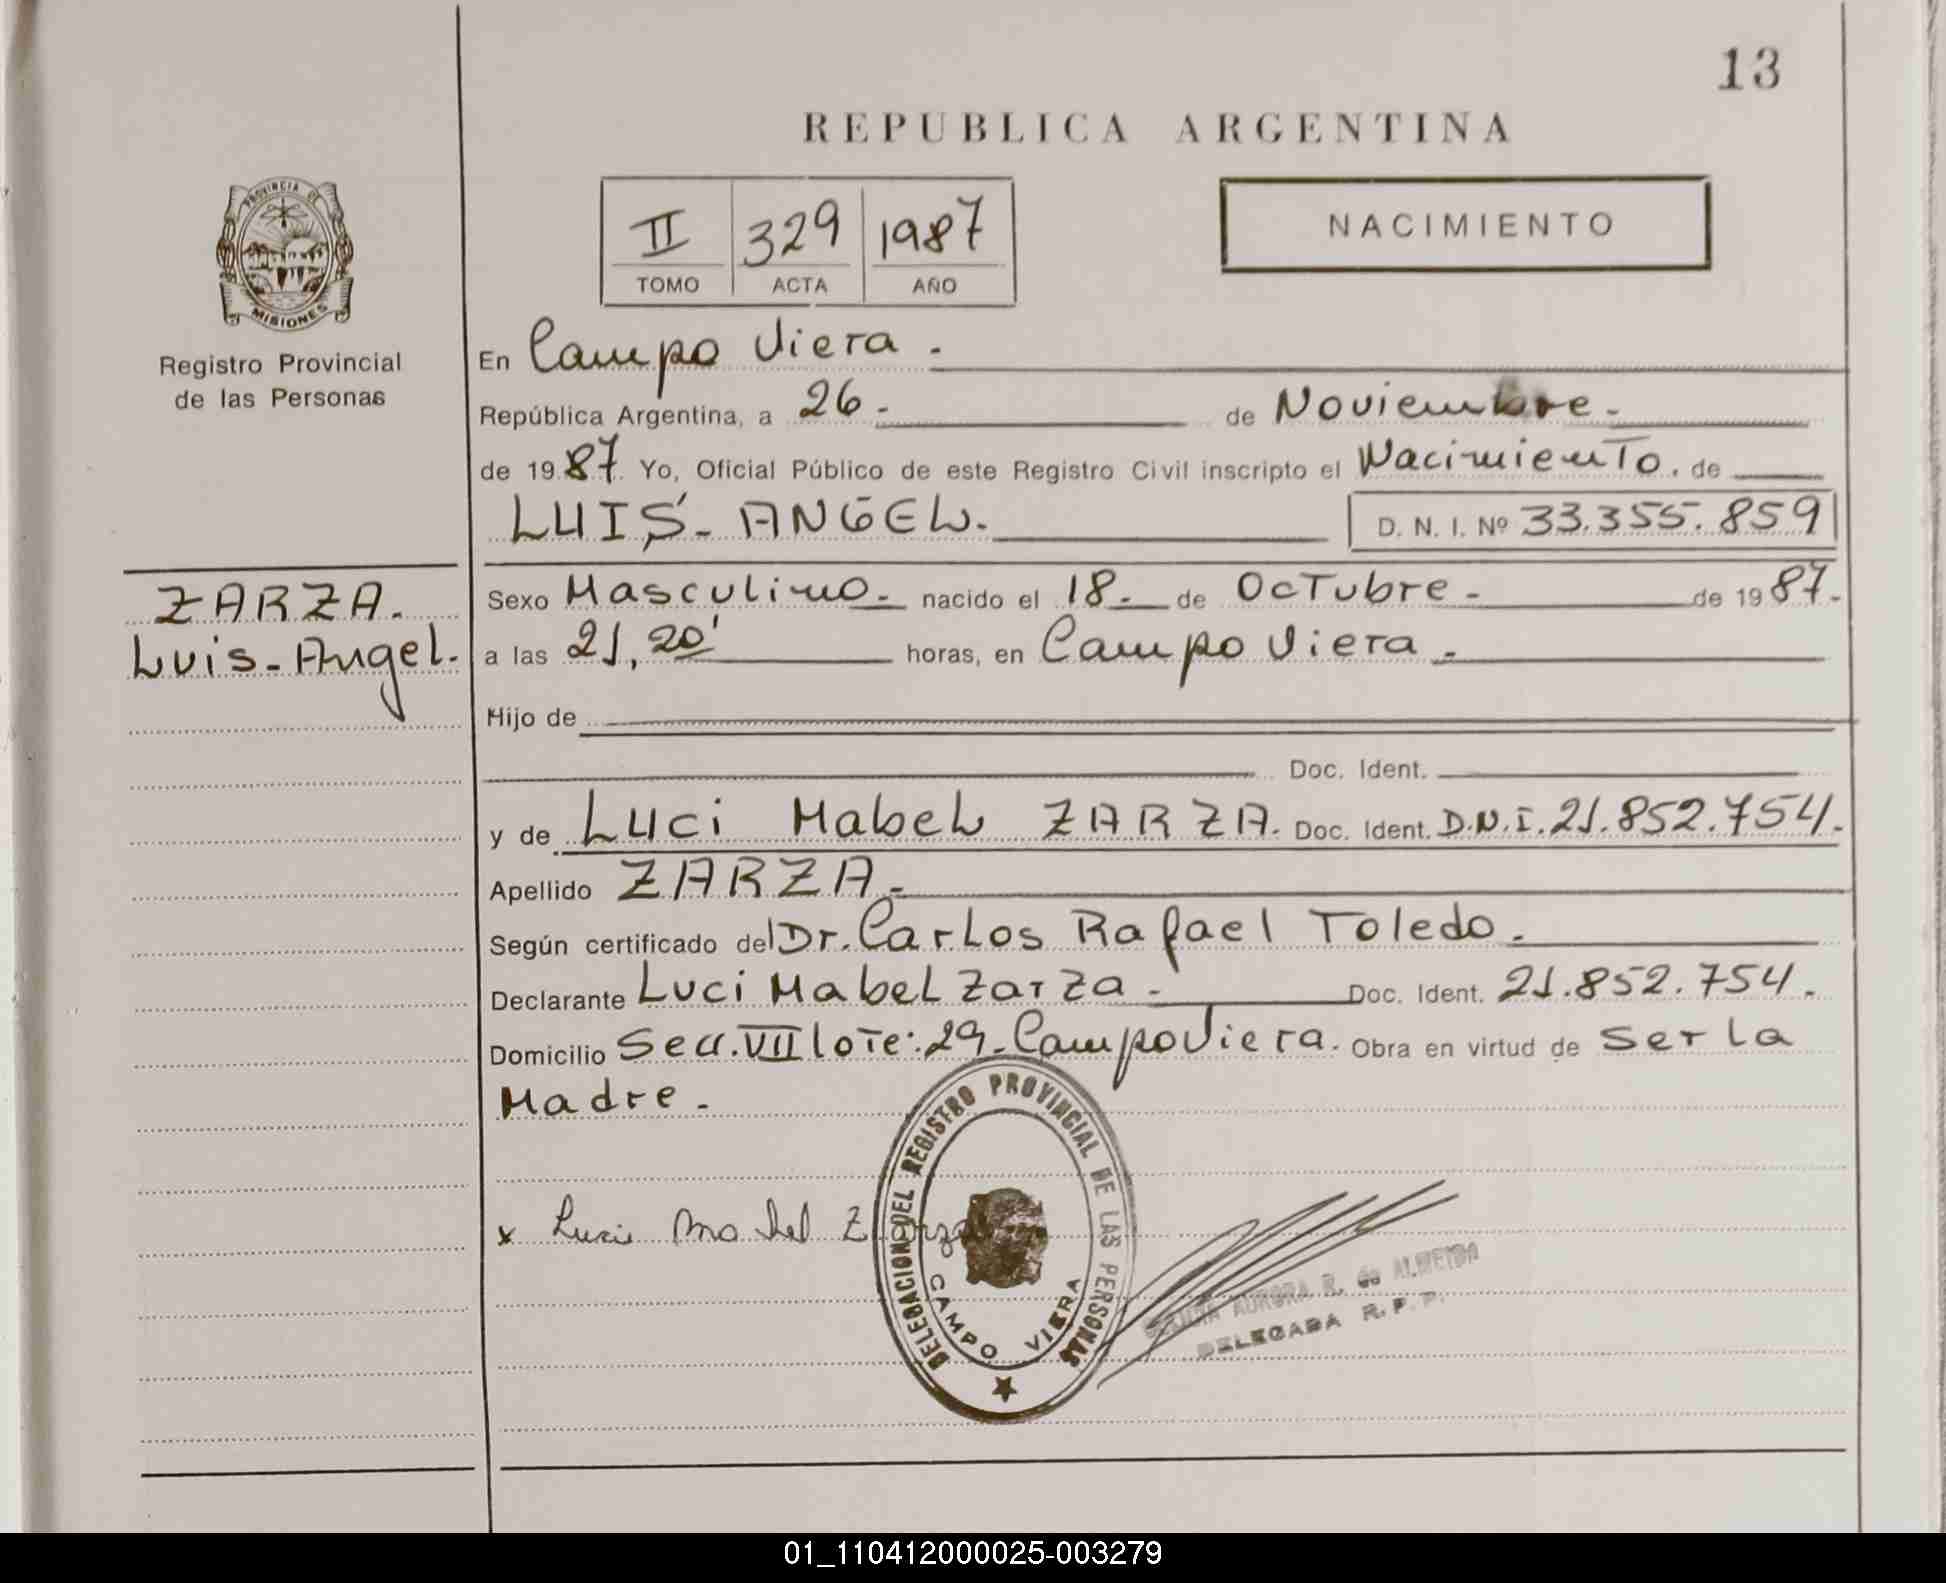 13
REPUBLICA ARGENTINA
PROVINCIA DE
MISIONES
Registro Provincial
de las Personas
II 329 1987
TOMO ACTA AÑO
NACIMIENTO
En Campo Viera.
República Argentina, a 26.- de Noviembre.-
de 1987. Yo, Oficial Público de este Registro Civil inscripto el Nacimiento. de
LUIS- ANGEL.
D. N. I. Nº 33.355.859
ZARZA.
Luis-Angel.-
Sexo Masculino.- nacido el 18.- de Octubre.- de 1987.-
a las 21,20' horas, en Campo Viera.-
Hijo de
Doc. Ident.
y de Luci Mabel ZARZA. Doc. Ident. D.N.I. 21.852.754.
Apellido ZARZA.-
Según certificado del Dr. Carlos Rafael Toledo.
Declarante Luci Mabel Zarza.- Doc. Ident. 21.852.754.
Domicilio Secc. VII lote: 29. Campo Viera. Obra en virtud de ser la
Madre.-
x Luci Mabel Zarza
DELEGACION DEL REGISTRO PROVINCIAL DE LAS PERSONAS
CAMPO VIERA
AURORA R. de ALMEIDA
DELEGADA R. P. P.
01_110412000025-003279